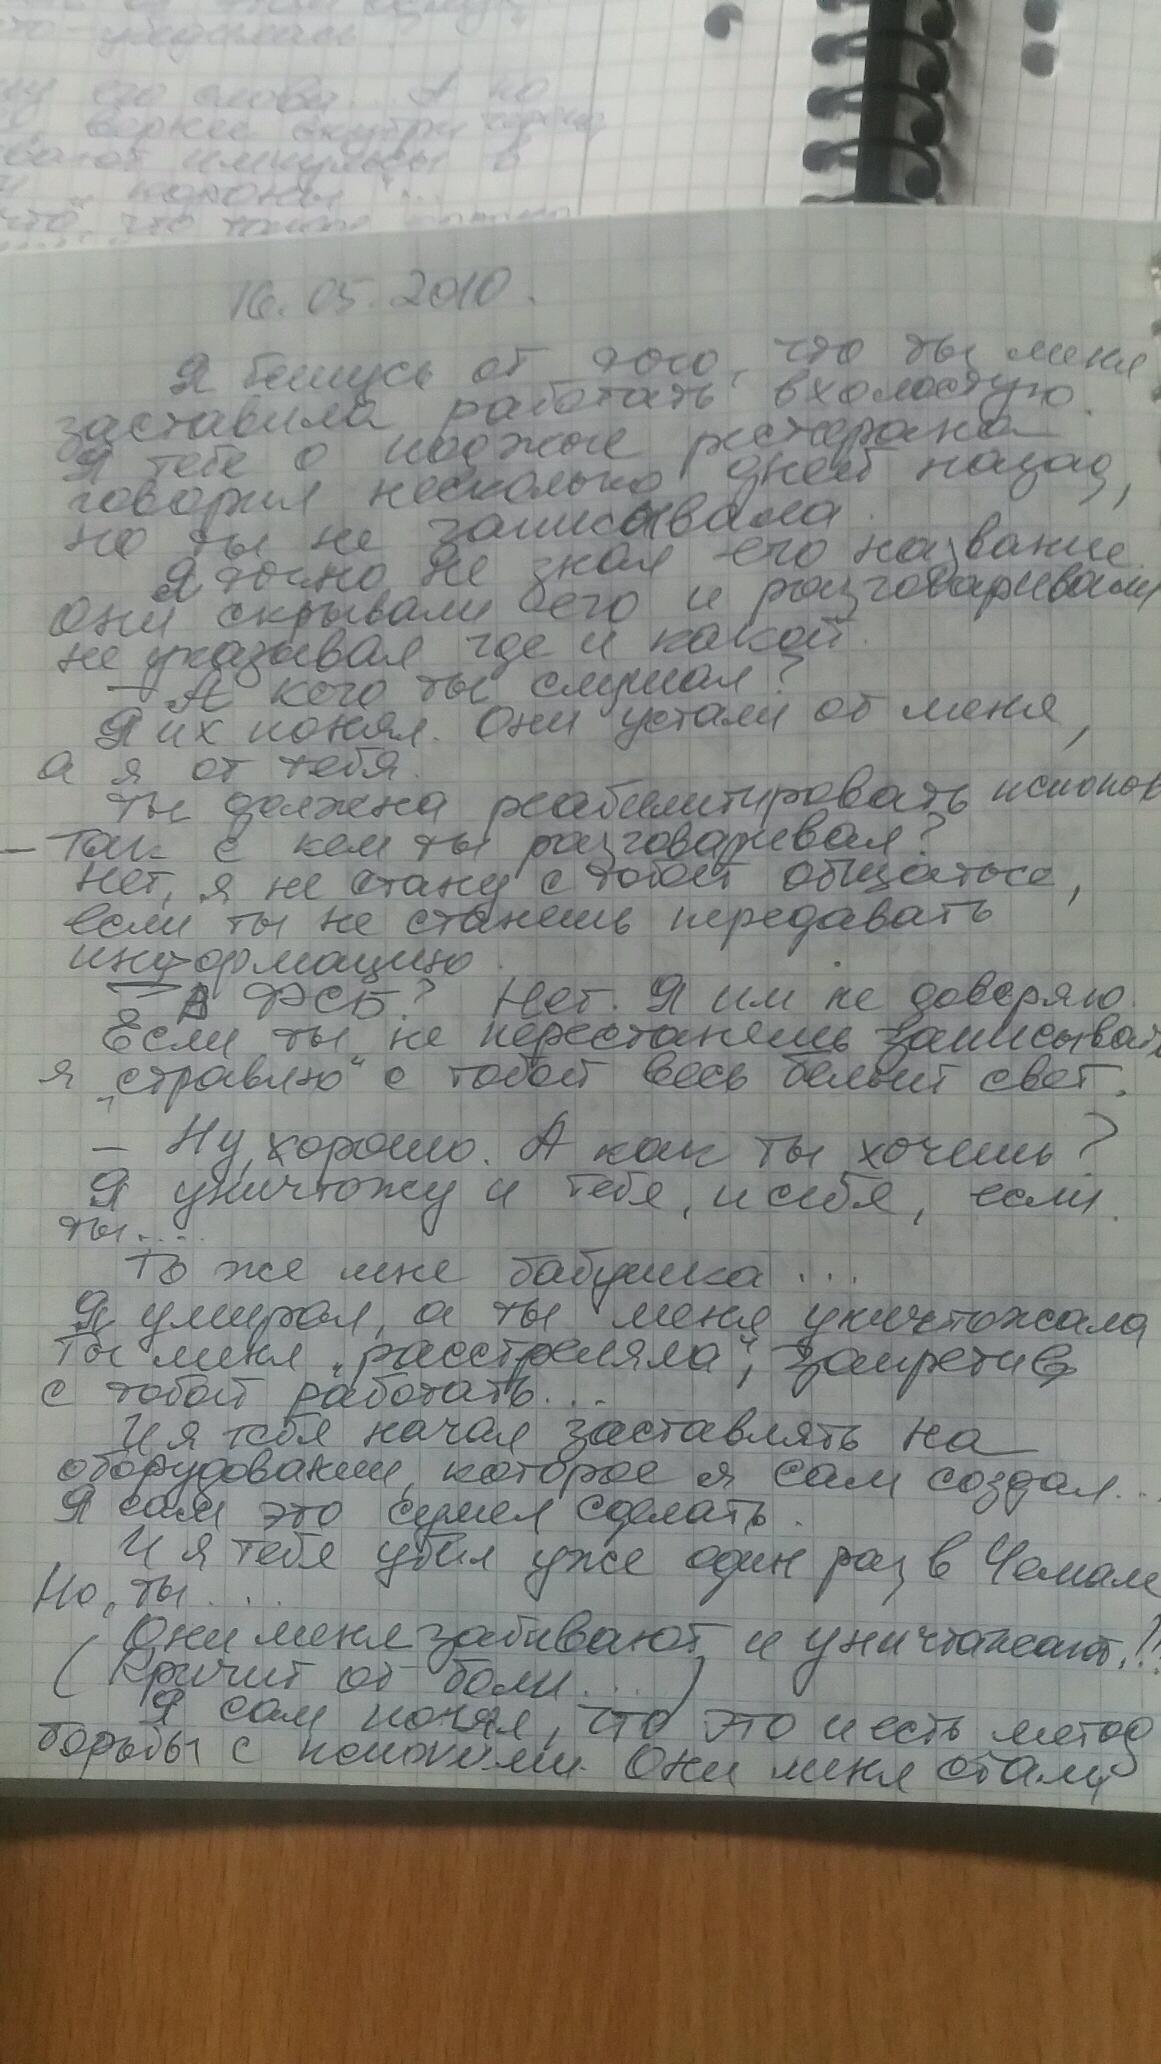 его слова... А по
вернее внутри
импульсы в
короны ...
что, что такое
16.05.2010.
Я бешусь от того, что ты меня
заставила работать вхолостую.
Я тебе о поджоге ресторана
говорил несколько дней назад,
но ты не записывала.
Я точно не знал его название.
Они скрывали его и разговаривали
не указывая где и какой.
– А кого ты слушал?
Я их понял. Они устали от меня,
а я от тебя.
Ты должна реабилитировать
– Так с кем ты разговаривал?
Нет, я не стану с тобой общаться,
если ты не станешь передавать
информацию.
– В ФСБ? Нет. Я им не доверяю.
Если ты не перестанешь записывать
я „стравлю" с тобой весь белый свет.
– Ну, хорошо. А как ты хочешь?
Я уничтожу и тебя, и себя, если
ты....
То же мне бабушка ...
Я умирал, а ты меня уничтожала
Ты меня „расстреляла", запретив
с тобой работать...
И я тебя начал заставлять на
оборудовании, которое я сам создал...
Я сам это сумел сделать.
И я тебя убил уже один раз в Чемале
Но, ты ....
Они меня забивают и уничтожают!!
( Кричит от боли ... )
Я сам понял, что это и есть метод
борьбы с Они меня стали